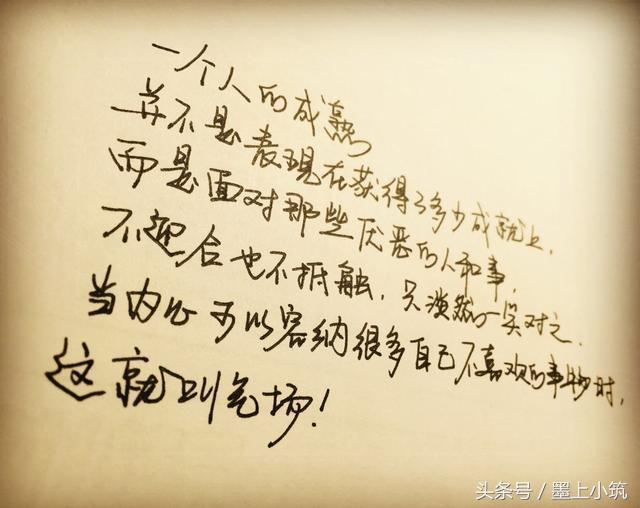 一个人的成熟
并不是表现在获得了多少成就上,
而是面对那些厌恶的人和事,
不迎合也不抵触,只淡然一笑对之.
当内心可以容纳很多自己不喜欢的事物时,
这就叫气场!
头条号/墨上小筑